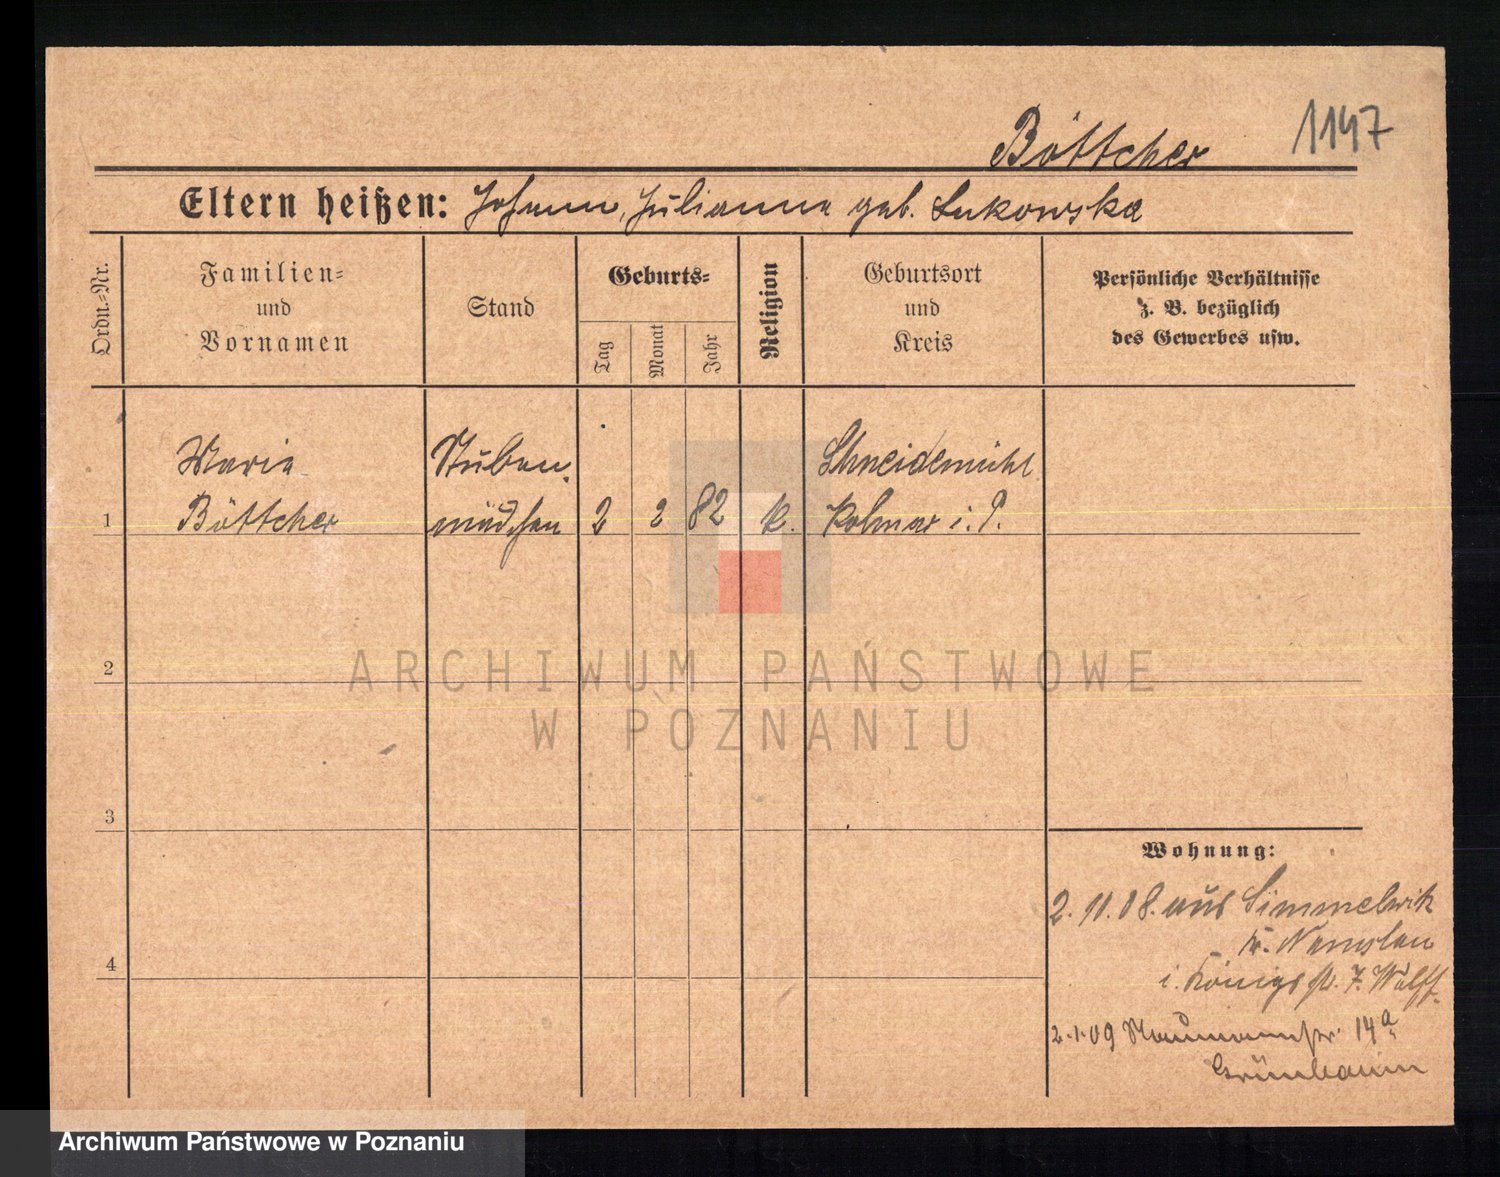 Böttcher 1147
Eltern heißen: Johann, Julianna geb. Lukowska
Ordn.-Nr.
Familien-
und
Vornamen
Stand
Geburts-
Tag
Monat
Jahr
Religion
Geburtsort
und
Kreis
Persönliche Verhältnisse
z. B. bezüglich
des Gewerbes usw.
Marie Stuben- Schneidemühl
1 Böttcher mädchen 2 2 82 k. Kolmar i. P.
2
3
4
Wohnung:
2.11.08. aus Simmelwitz
Kr. Namslau
i. Königspl. 7. Wolff
2.1.09 Naumannstr. 14a
Grünbaum
ARCHIWUM PAŃSTWOWE
W POZNANIU
Archiwum Państwowe w Poznaniu